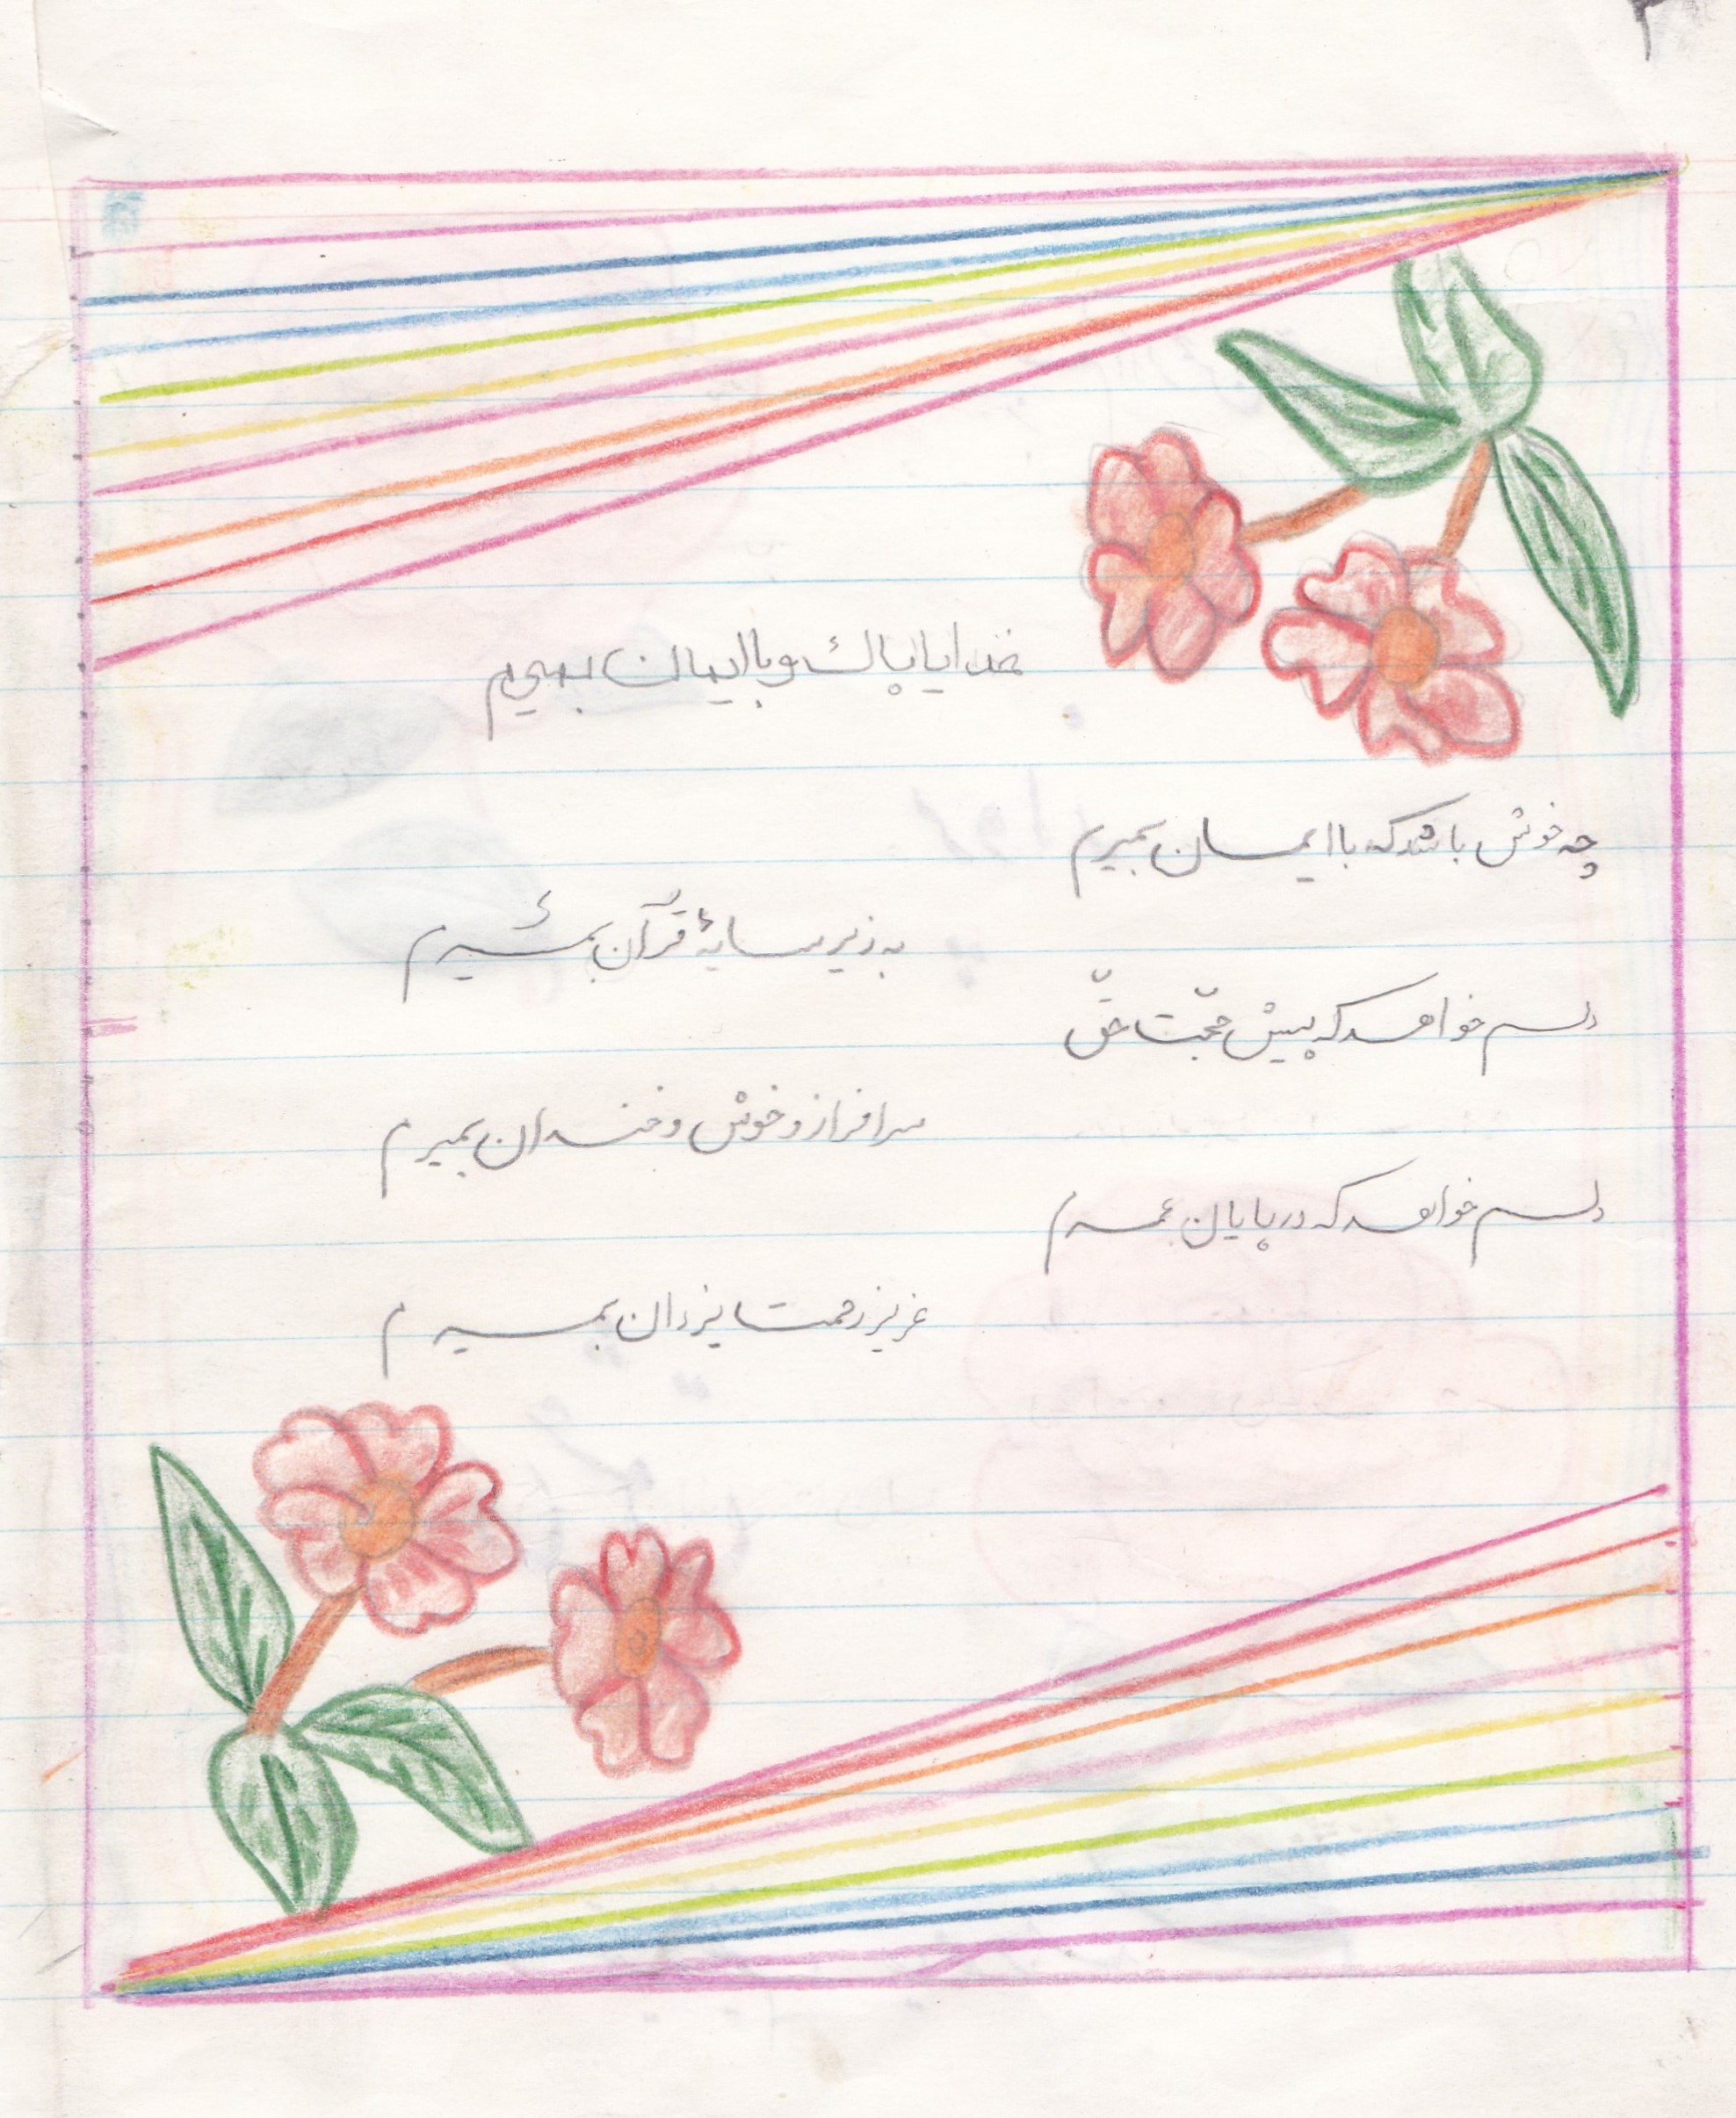 خدایا پاک و با ایمان بمیرم
چه خوش باشد که با ایمان بمیرم
به زیر سایهٔ قرآن بمیرم
دلم خواهد که پیش حجّت حقّ
سرافراز و خوش و خندان بمیرم
دلم خواهد که در پایان عمرم
عزیز رحمت یزدان بمیرم